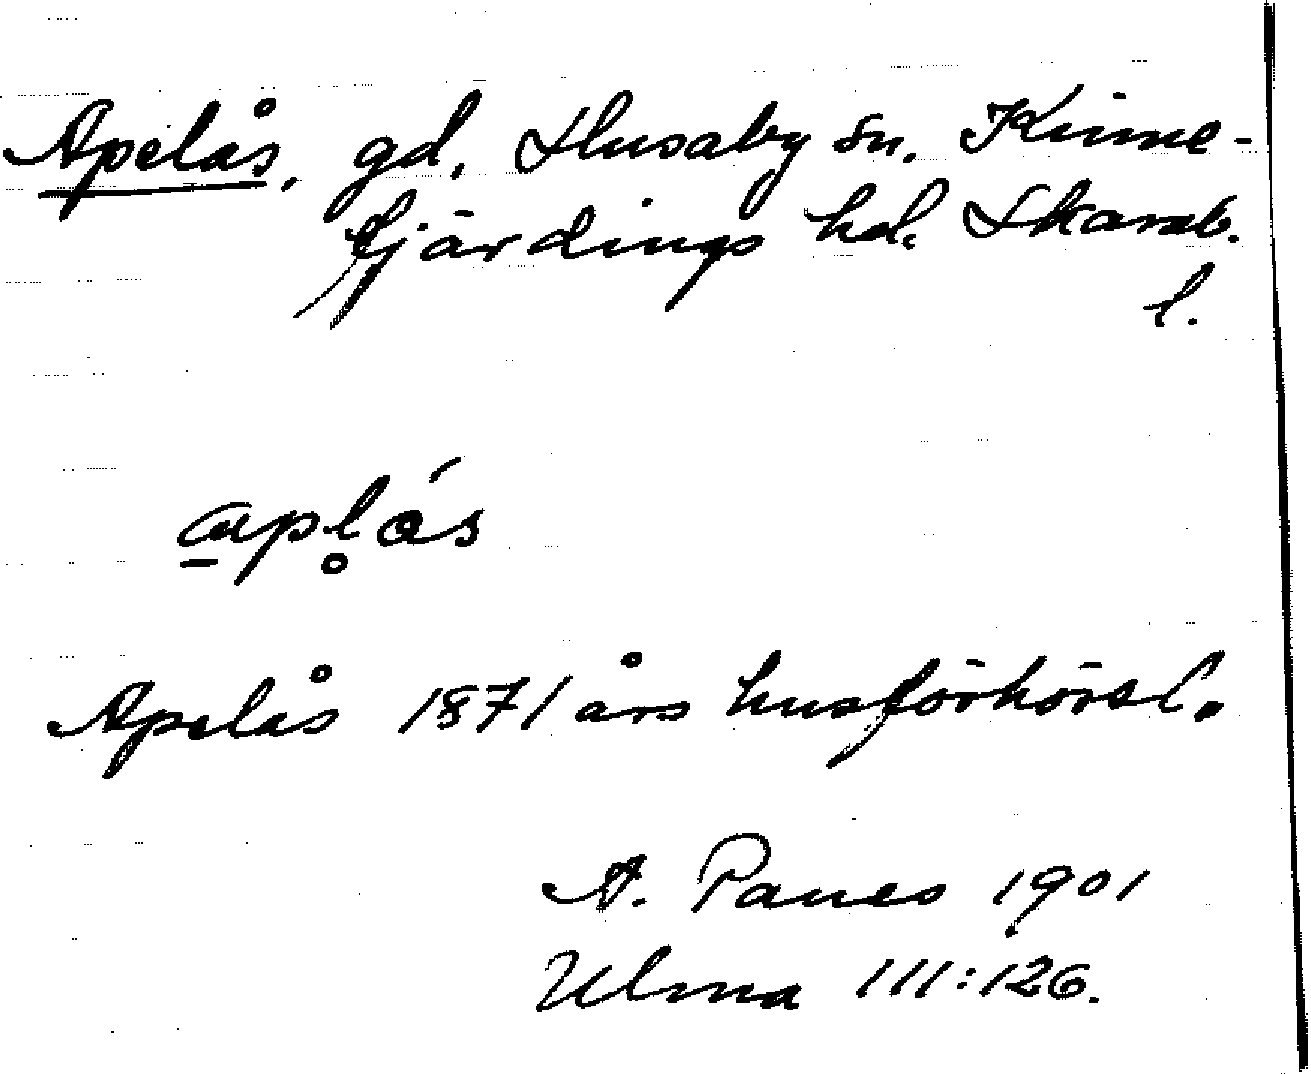 Apelås, gd, Husaby sn. Kinne-
fjärdings hd. Skarab.
l.
a̲pl̥ás
Apelås 1871 års husförhörsl.
A. Panes 1901
Ulma 111:126.